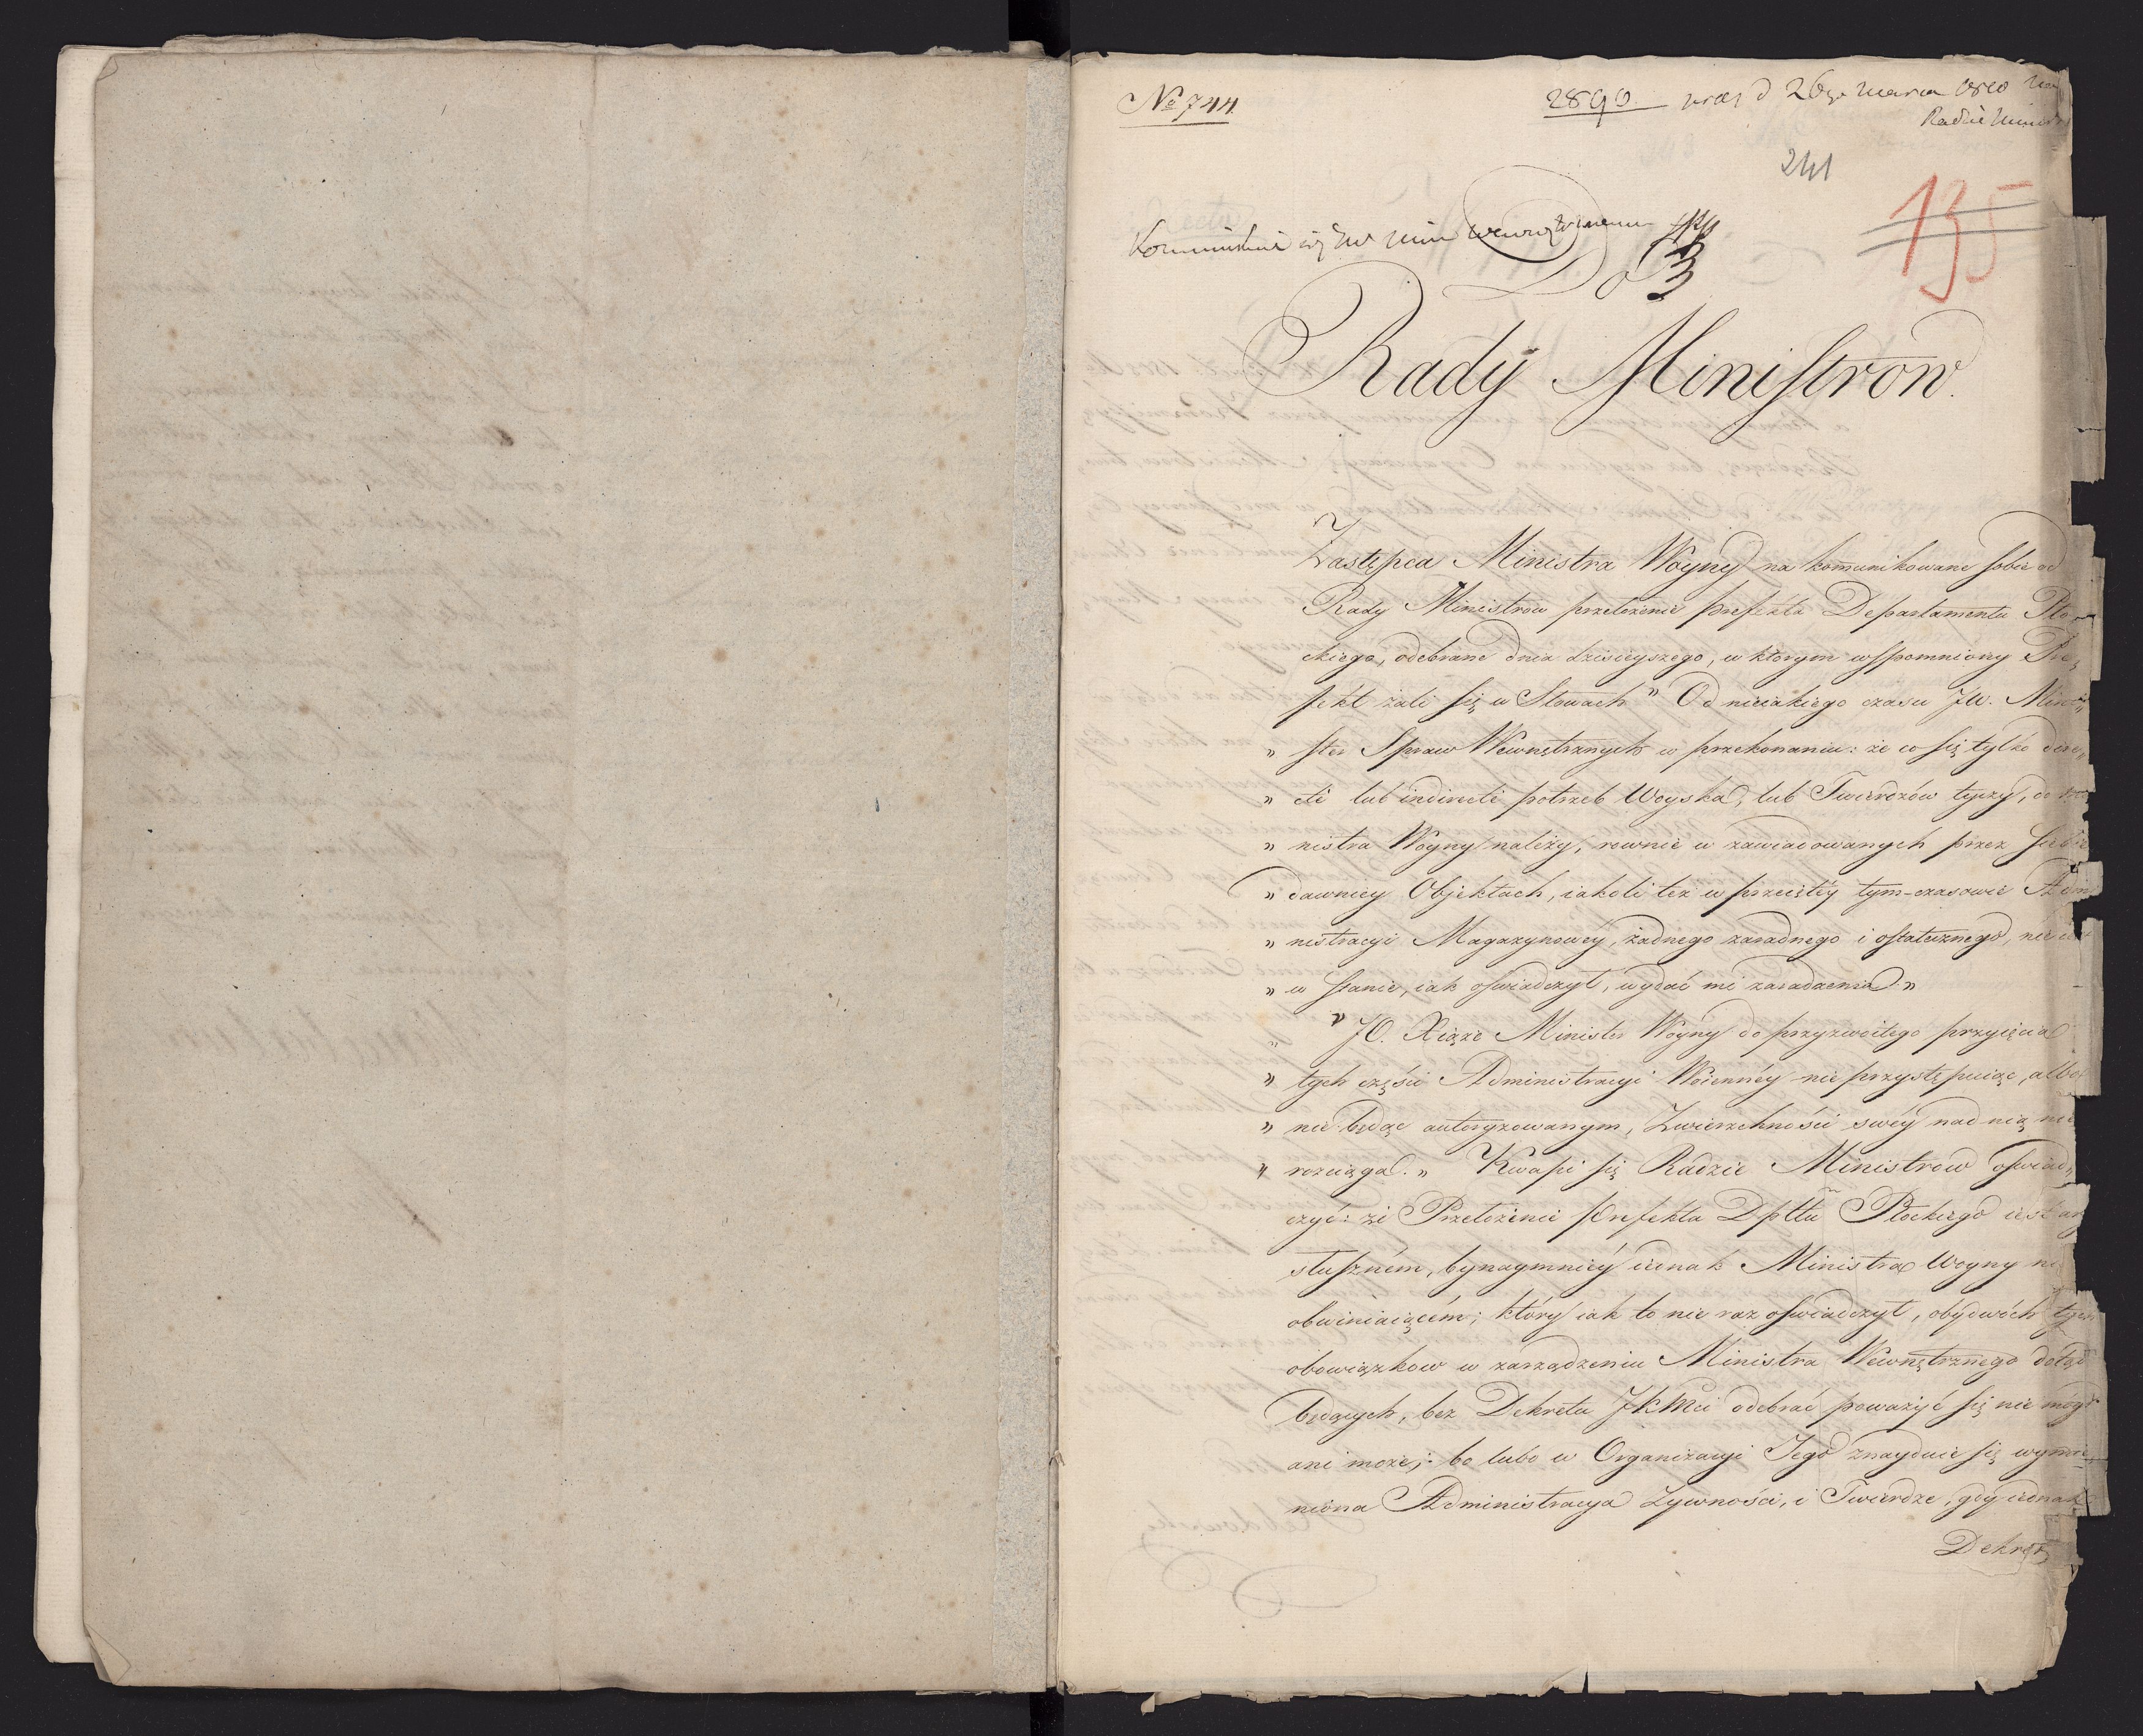 No 744.
2890. 26go marca 1810
Radzie Minis
241
195
Kommunikuie się JW Min Wewnętrznemu
Do
Rady Ministrow.
Zastępca Ministra Woyny na komunikowane sobie od
Rady Ministrow przełożenie prefekta Departamentu Pło-
ckiego, odebrane dnia dzisieyszego, w ktorym wspomniony Pre„
fekt żali się w Słowach „ Od nieiakiego czasu JW. Mini„
„ ster Spraw Wewnętrznych w przekonaniu: że co się tylko dire„
„ cti lub indirecti potrzeb Woyska, lub Twierdzów tyczy, do
„ nistra Woyny należy, rownie w zawiadowanych przez siebie
„ dawniey Objektach, iakoli też w przeiętéy tym-czasowie Admi
„ nistracyi Magazynowéy, żadnego zasadnego i ostatecznego, nie
„ w stanie, iak oświadczył, wydać mi zasadzenia.„
„ „ JO. Xiąże Minister Woyny do przyzwoitego przyięcia
„ tych części Administracyi Woiennéy nie przystępuiąc, albo
„ nie będąc autoryzowanym, Zwierzchności swéy nad nią nie
„ rozciąga.„ Kwapi się Radzie Ministrow oświad„
czyć: że Przełożenie Prefekta Dpttu Płockiego iest
słuszném, bynaymniéy iednak Ministra Woyny nie
obwiniaiącém; który iak to nie raz oświadczył, obydwóch tych
obowiązkow w zarządzeniu Ministra Wewnętrznego dotąd
będących, bez Dekretu JKMci odebrać poważyć się nie mógł
ani może; bo lubo w Organizacyi Jego znayduie się wymie„
niona Administracya Żywności, i Twierdze, gdy iednak
Dekret